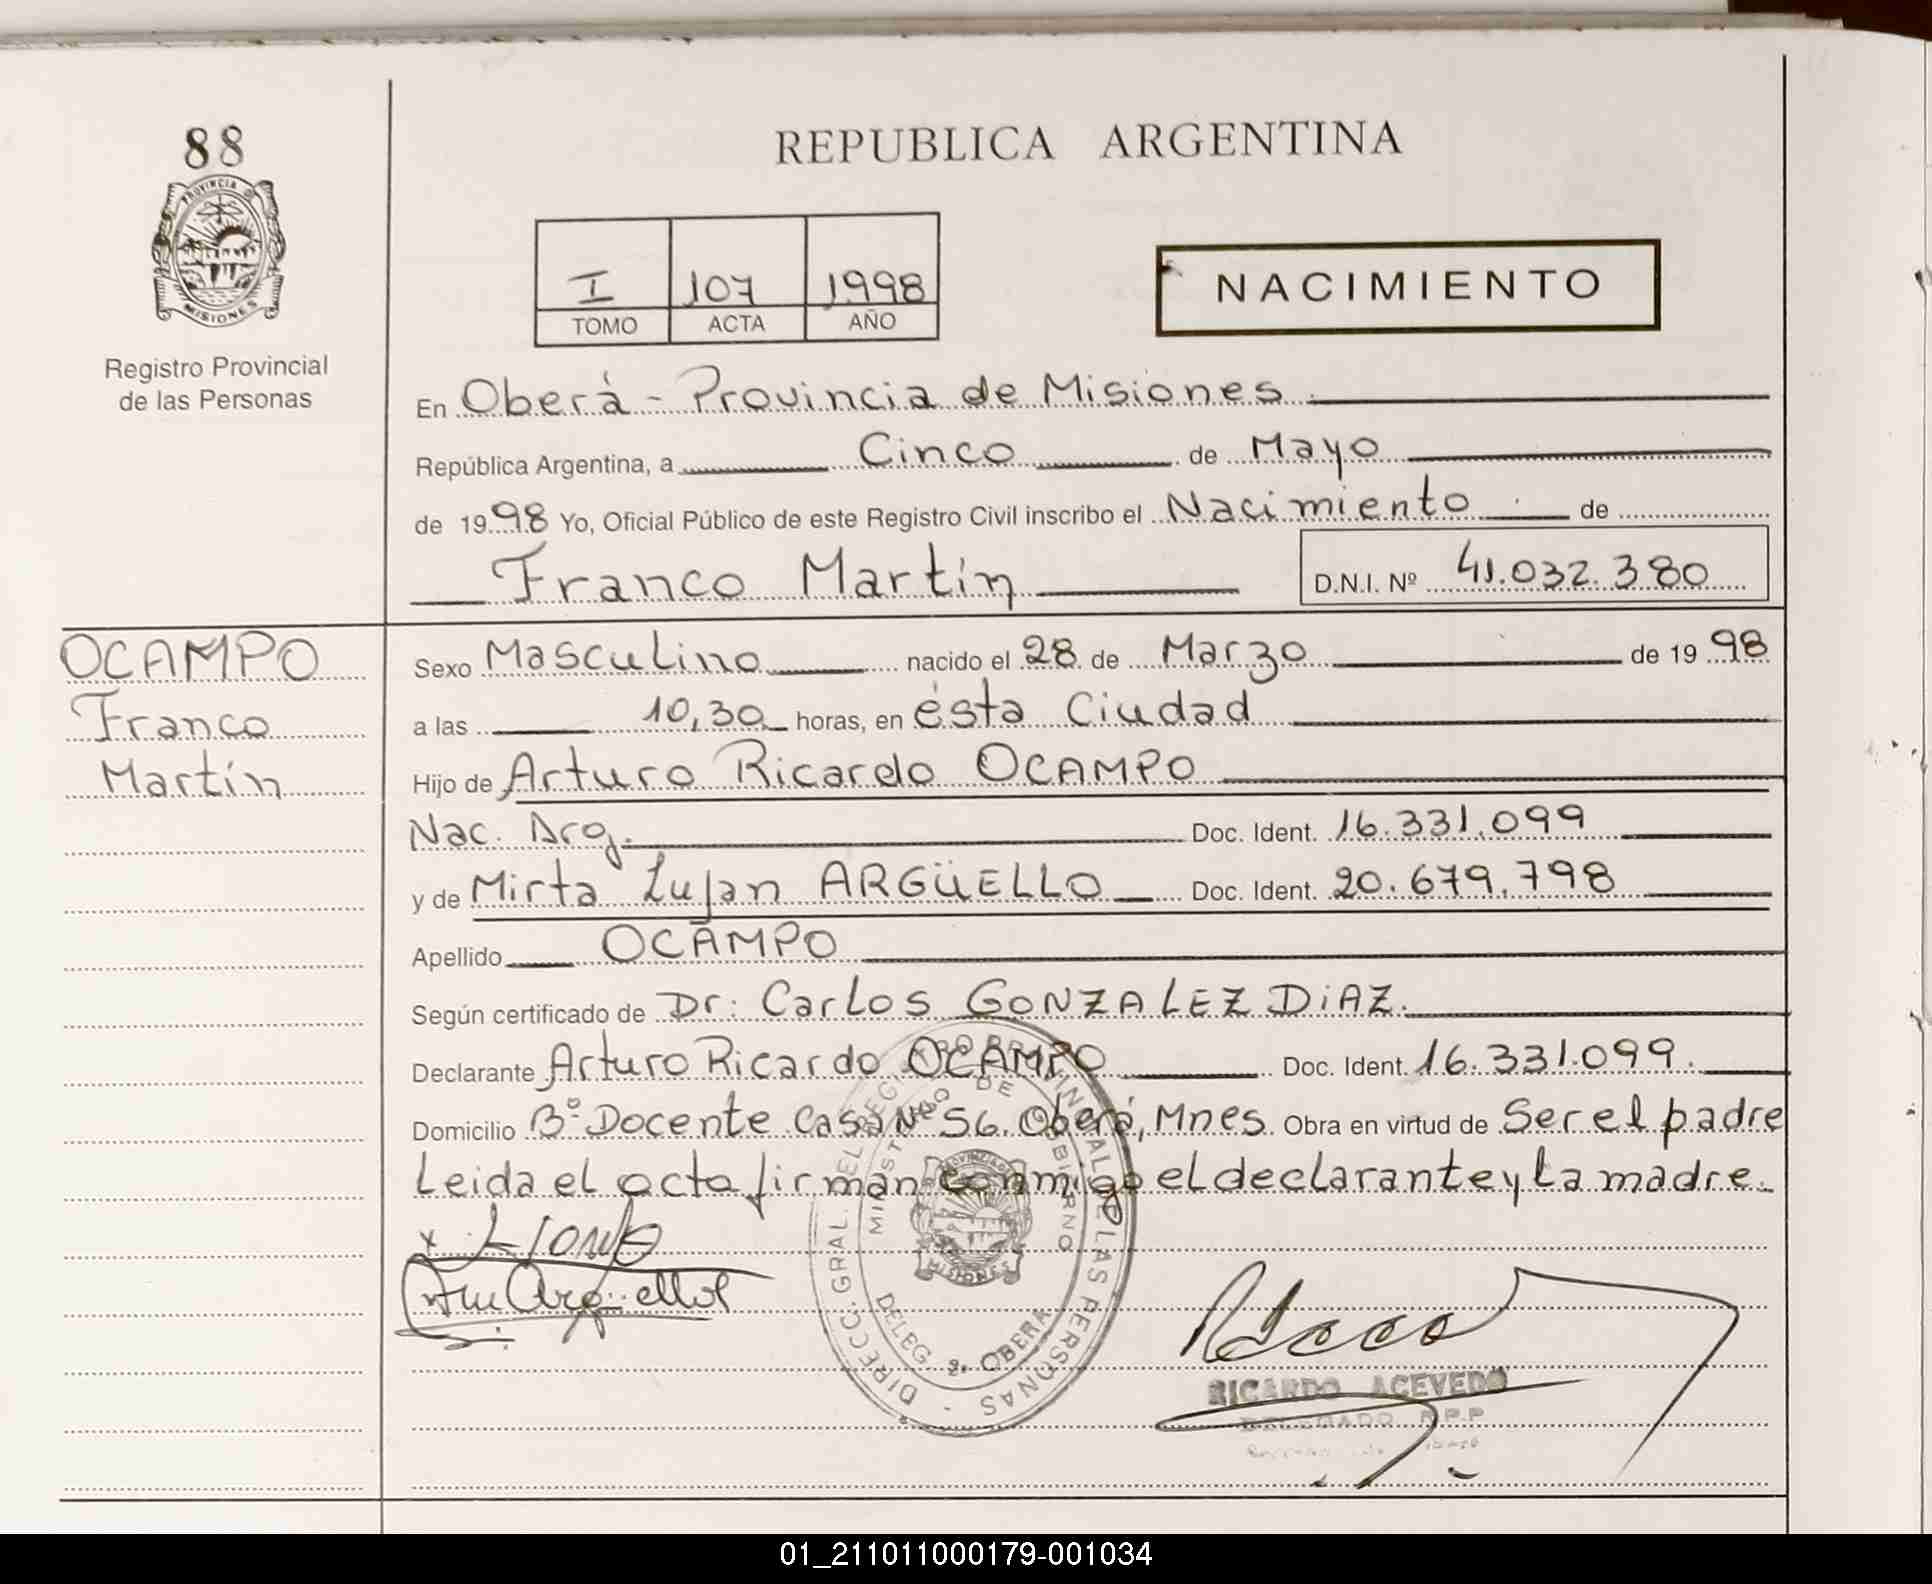 88
PROVINCIA DE
MISIONES
Registro Provincial
de las Personas
REPUBLICA ARGENTINA
I 107 1998
TOMO ACTA AÑO
NACIMIENTO
En Oberá - Provincia de Misiones
República Argentina, a Cinco de Mayo
de 1998 Yo, Oficial Público de este Registro Civil inscribo el Nacimiento de
Franco Martín
D.N.I. Nº 41.032.380
OCAMPO
Franco
Martín
Sexo Masculino nacido el 28 de Marzo de 1998
a las 10,30 horas, en ésta Ciudad
Hijo de Arturo Ricardo OCAMPO
Nac. Arg. Doc. Ident. 16.331.099
y de Mirta Lujan ARGÜELLO Doc. Ident. 20.679.798
Apellido OCAMPO
Según certificado de Dr: Carlos GONZALEZ DiAZ.
Declarante Arturo Ricardo OCAMPO Doc. Ident. 16.331.099.
Domicilio Bº Docente Casa Nº 56. Oberá, Mnes. Obra en virtud de Ser el padre
Leida el acta firman conmigo el declarante y la madre.
DIRECC. GRAL. DEL REGISTRO PROVINCIAL DE LAS PERSONAS
MINISTERIO DE GOBIERNO
PROVINCIA DE
MISIONES
DELEG. OBERA
RICARDO ACEVEDO
DELEGADO R.P.P
01_211011000179-001034